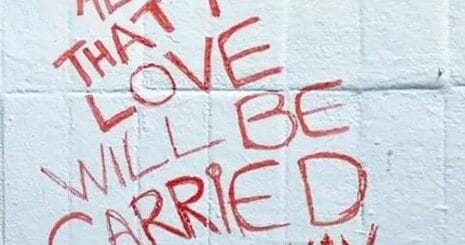 THAT I
LOVE
WILL BE
CARRIED